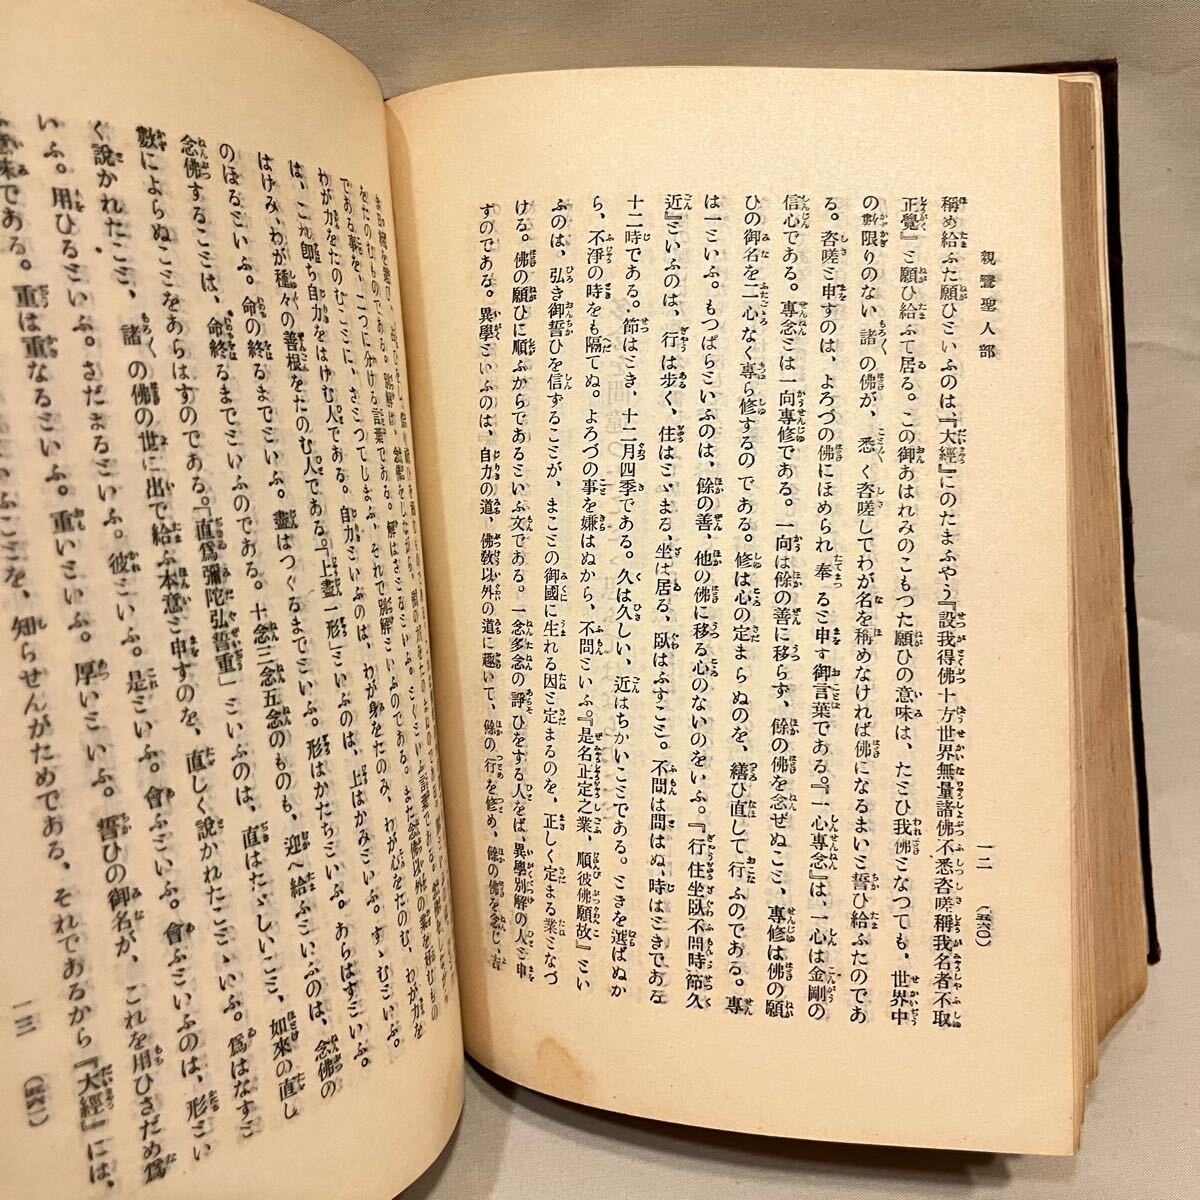 親鸞聖人部
一二
(五六〇)
稱め給ふた願ひといふのは、『大經』にのたまふやう『設我得佛十方世界無量諸佛不悉咨嗟稱我名者不取
正覺』と願ひ給ふて居る。この御あはれみのこもつた願ひの意味は、たとひ我佛となつても、世界中
の數限りのない諸の佛が、悉く咨嗟してわが名を稱めなければ佛になるまいと誓ひ給ふたのであ
る。咨嗟と申すのは、よろづの佛にほめられ奉ると申す御言葉である。『一心專念』は、一心は金剛の
信心である。專念とは一向專修である。一向は餘の善に移らず、餘の佛を念ぜぬこと、專修は佛の願
ひの御名を二心なく專ら修するのである。修は心の定まらぬのを、繕ひ直して行ふのである。專
は一といふ。もつぱらといふのは、餘の善、他の佛に移る心のないのをいふ。『行住坐臥不問時節久
近』といふのは、行は步く、住はとゞまる、坐は居る、臥はふすこと。不問は問はぬ、時はときである
十二時である。節はとき、十二月四季である。久は久しい、近はちかいことである。ときを選ばぬか
ら、不淨の時をも隔てぬ。よろづの事を嫌はぬから、不問といふ。『是名正定之業、順彼佛願故』とい
ふのは、弘き御誓ひを信ずることが、まことの御國に生れる因と定まるのを、正しく定まる業となづ
ける。佛の願ひに順ふからであるといふ文である。一念多念の諍ひをする人をば、異學別解の人と申
すのである。異學といふのは、自力の道、佛敎以外の道に趣いて、餘の行を修め、餘の佛を念じ、吉
をたのむものである。別解は、念佛をしながら、
である事を、二つに分ける言葉である。解はさとるといふ。とくといふ言葉である。また念佛以外の業を積むもの
わが力をたのむことに、さとつてしまふ、それで別解といふのである。
は、これ卽ち自力をはげむ人である。自力といふのは、わが身をたのみ、わが心をたのむ、わが力を
はげみ、わが種々の善根をたのむ人である。「上盡一形」といふのは、上はかみといふ。すゝむといふ。
のぼるといふ。命の終るまでといふ。盡はつくるまでといふ。形はかたちといふ。あらはすといふ。
念佛することは、命終るまでといふのである。十念三念五念のものも、迎へ給ふといふのは、念佛の
數によらぬことをあらはすのである。「直爲彌陀弘誓重」といふのは、直はたゞしいこと、如來の直し
く說かれたこと、諸の佛の世に出で給ふ本意と申すのを、直しく說かれたことゝいふ。爲はなすと
いふ。用ひるといふ。さだまるといふ。彼といふ。是といふ。會ふといふ。會ふといふのは、形とい
ふ意味である。重は重なるといふ。重いといふ。厚いといふ。誓ひの御名が、これを用ひさだめ爲
ふことを、知らせんがためである、それであるから『大經』には、
一三
(五六一)